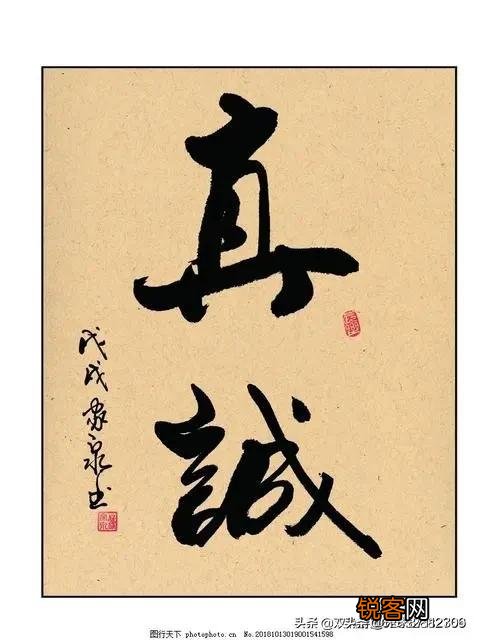 真
誠
戊戌
泉书
图行天下 photophoto.cn No.20181013019001541598
头条
锐客网